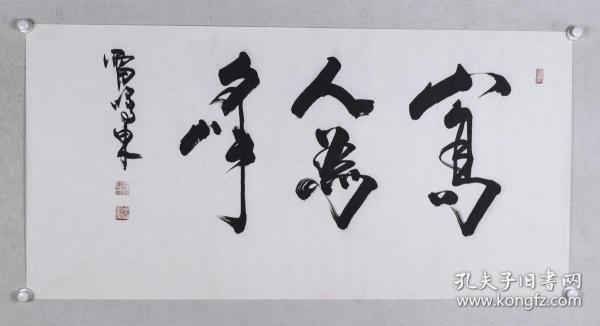 山高
人為
峰
雷鳴東
孔夫子旧书网
www.kongfz.com